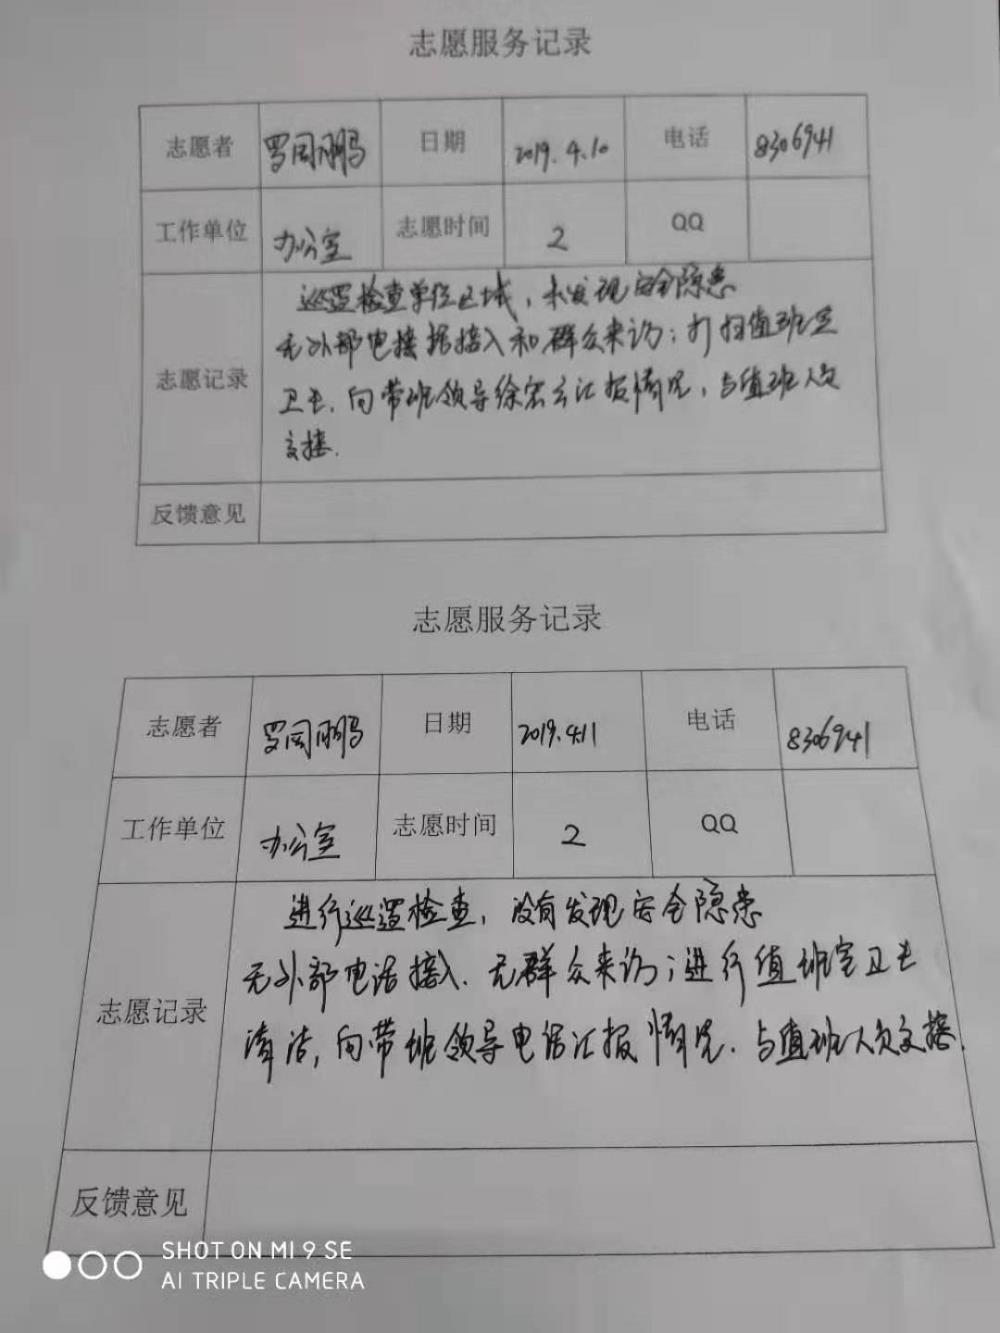 志愿服务记录
志愿者 罗同鹏 日期 2019.4.10 电话 8306941
工作单位 办公室 志愿时间 2 QQ
巡逻检查单位区域，未发现安全隐患
无外部电接接入和群众来访；打扫值班室
志愿记录
卫生，向带班领导徐宏云汇报情况，与值班人员
交接.
反馈意见
志愿服务记录
志愿者 罗同鹏 日期 2019.4.11 电话 8306941
工作单位 办公室 志愿时间 2 QQ
进行巡逻检查，没有发现安全隐患
无外部电话接入.无群众来访；进行值班室卫生
志愿记录
清洁，向带班领导电话汇报情况.与值班人员交接.
反馈意见
SHOT ON MI 9 SE
AI TRIPLE CAMERA